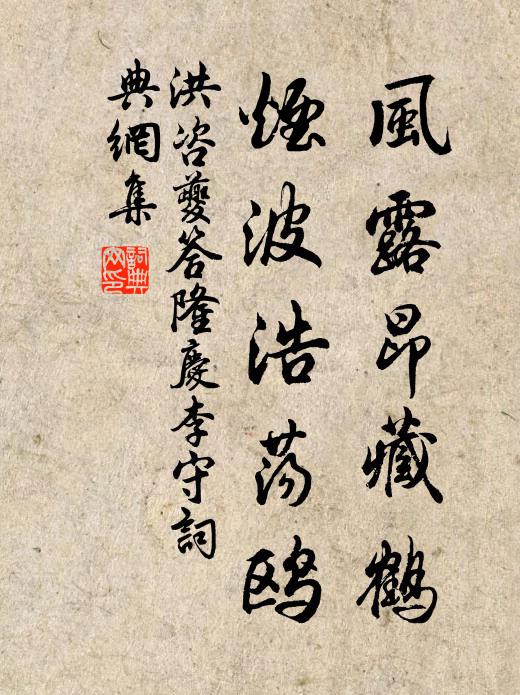 風露昂藏鶴
煙波浩荡鸥
洪咨夔答隆慶李守詞
典網集
詞典